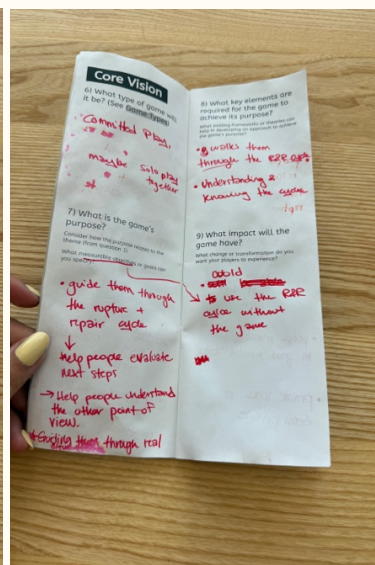 Core Vision
6) What type of game will
it be? (See Game Types)
Committed Play,
maybe solo play
together
7) What is the game's
purpose?
Consider how the purpose relates to the
theme (from question 1).
What measurable objectives or goals can
you specify?
• guide them through
the rupture +
repair cycle
↓
Help people evaluate
next steps
→ Help people understand
the other point of
view.
Guiding them through real
8) What key elements are
required for the game to
achieve its purpose?
What existing frameworks or theories can
help in developing an approach to achieve
the game's purpose?
• walks them
through the R&R
• Understanding &
knowing the cycle
9) What impact will the
game have?
What change or transformation do you
want your players to experience?
•
to use the R&R
cycle without
the game